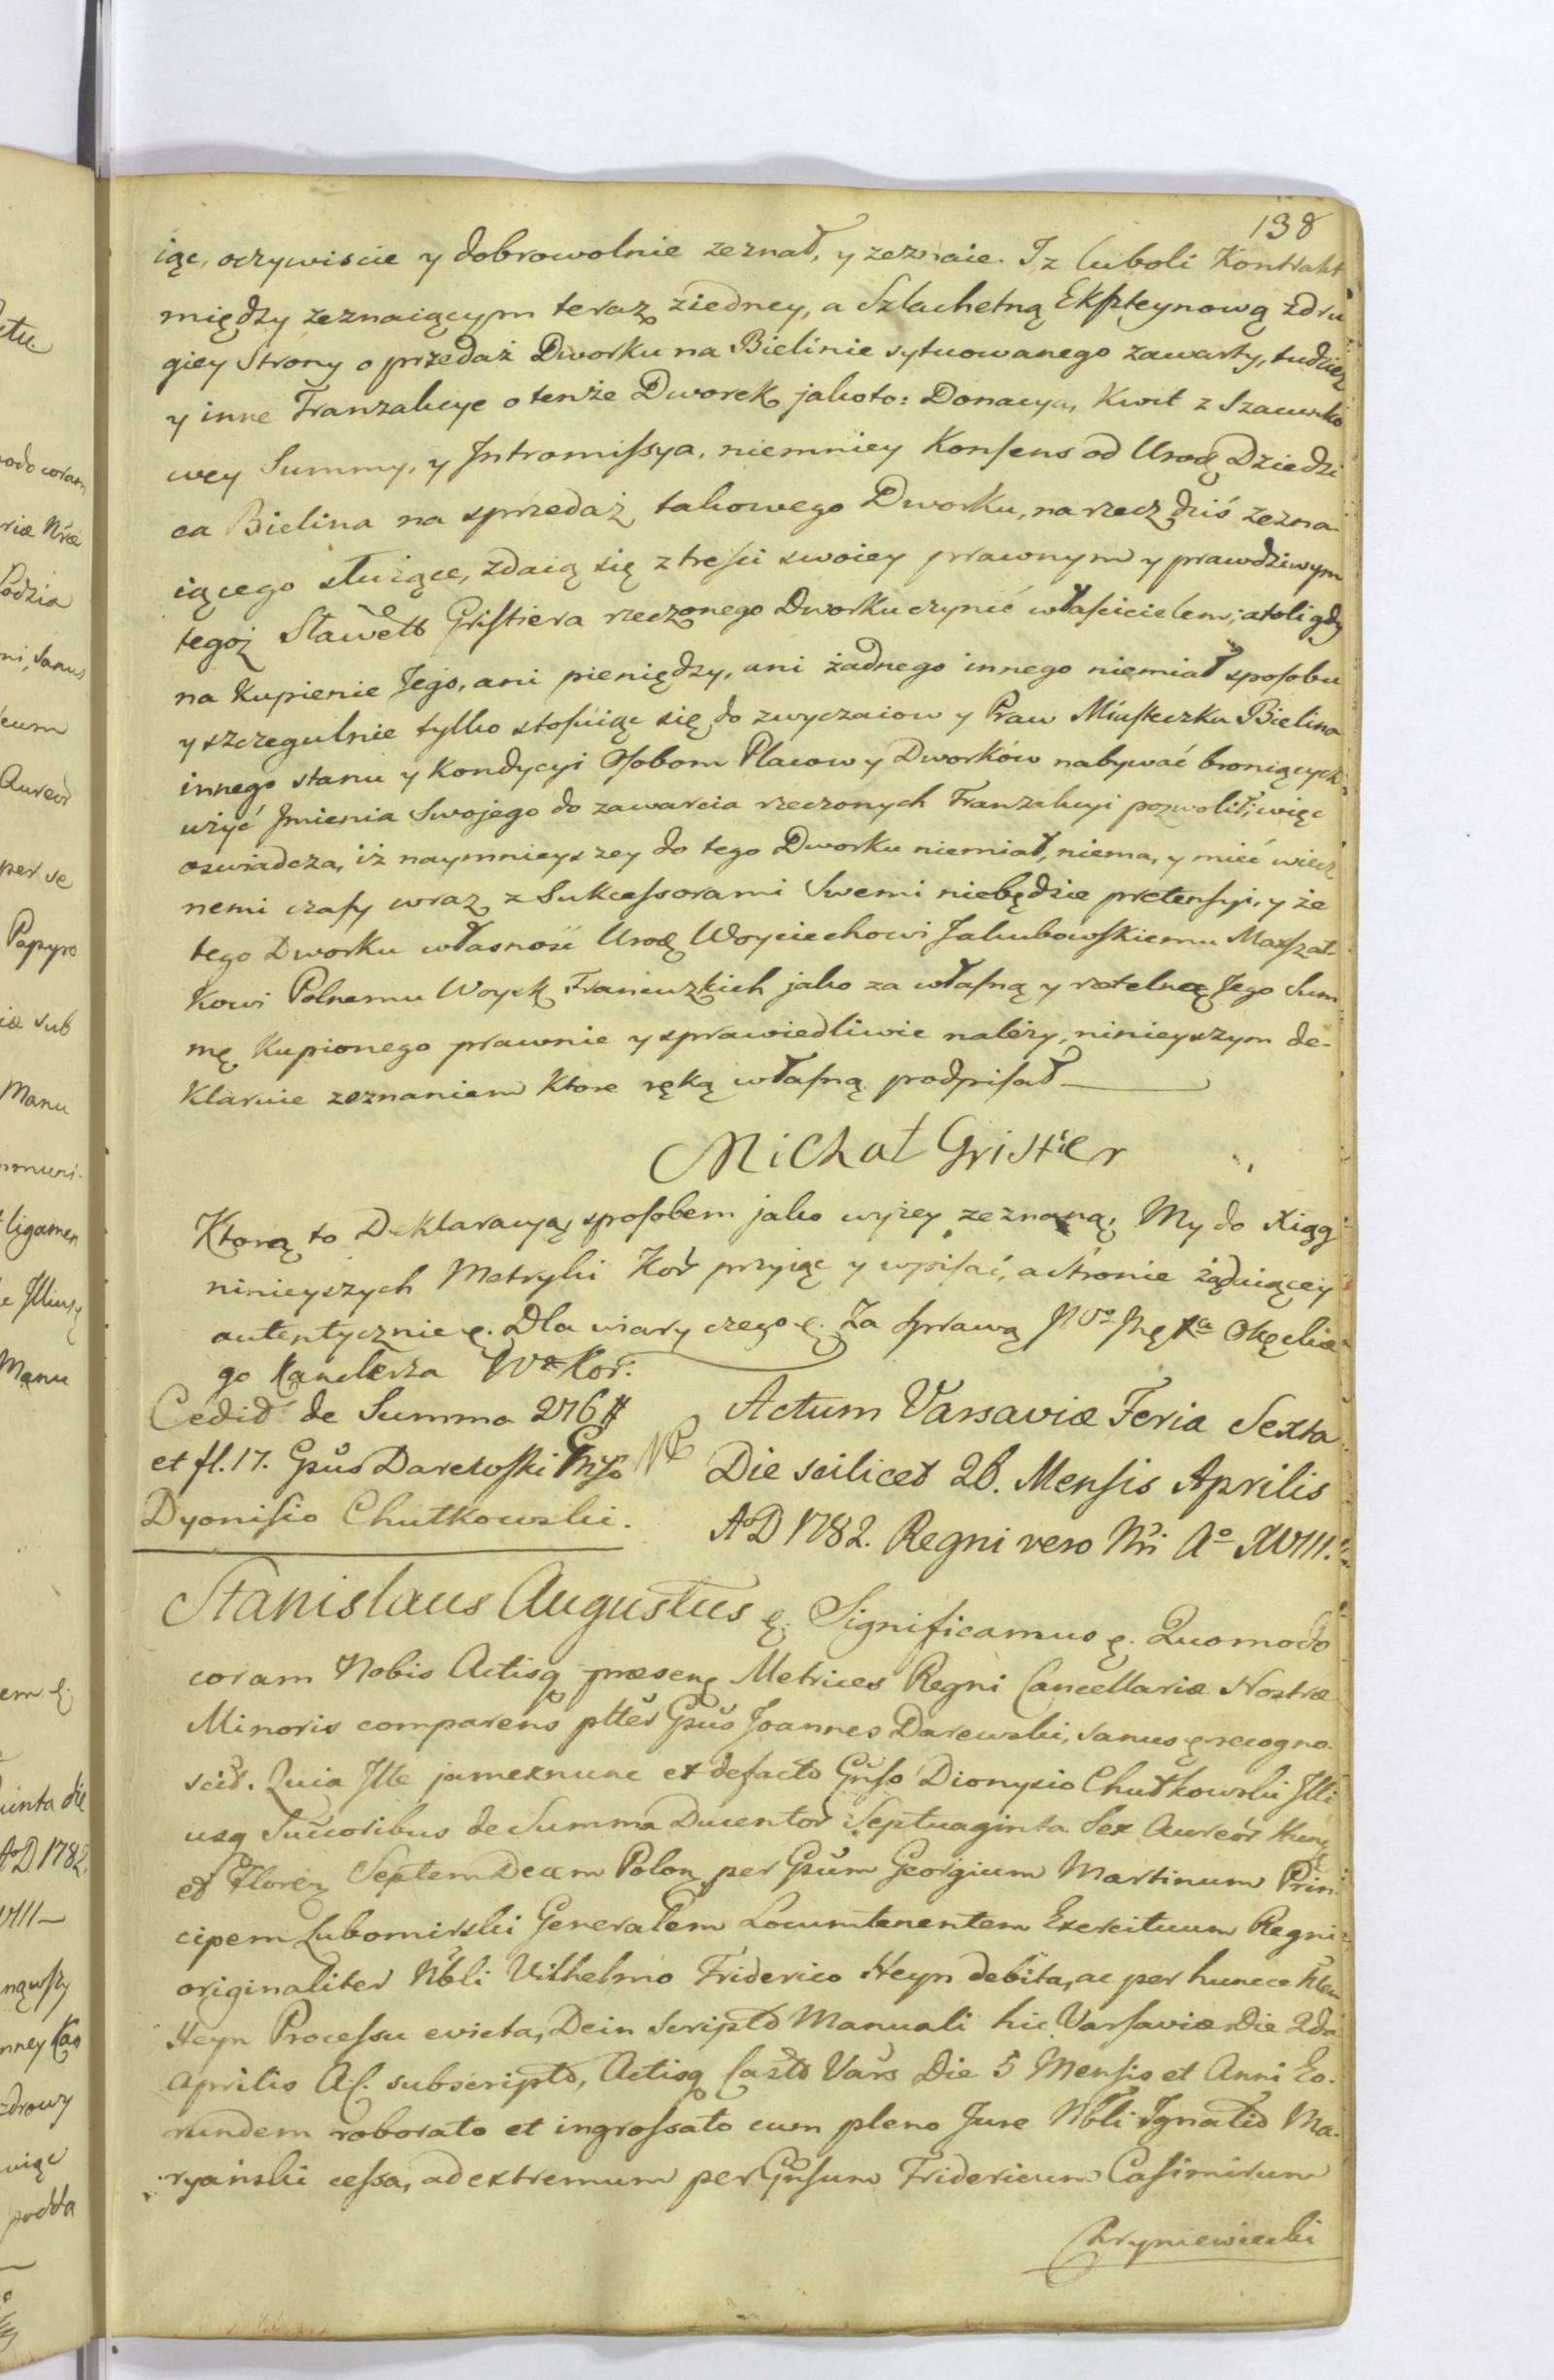 138
iąc, oczywiscie y dobrowolnie zeznał, y zeznaie. Iz luboli Kontrakt
między zeznaiącym teraz ziedney, a Szlachetną Eksszteynową zdru
giey Strony o przedaż Dworku na Bielinie sytuowanego zawarty, tudzież
y inne Tranzakcye o tenże Dworek jakoto: Donacya, Kwit z Szacunko
wey Summy, y Intromissya, niemniey Konsens od Urodz Dziedzi
ca Bielina na sprzedaż takowego Dworku, na rzecz dziś zezna-
iącego służące, zdaią się z treści swoiey prawnym y prawdziwym
tegoż Sławett Gristiera rzeczonego Dworku czynić właścicielem; atoli gdy
na Kupienie Jego, ani pieniędzy, ani żadnego innego niemiał sposobu
y szczegulnie tylko stosuiąc się do zwyczaiow y Praw Miasteczka Bielina
innego stanu y Kondycyi Osobom Placow y Dworków nabywać broniących,
użyć Jmienia Swojego do zawarcia rzeczonych Tranzakcyi pozwolił; więc
oswiadcza, iż naymnieyszey do tego Dworku niemiał, niema, y mieć wiecz
nemi czasy wraz z Sukcessorami Swemi niebędzie pretensyi, y że
tego Dworku własność Urodz Woyciechowi Jakubowskiemu Marszał-
kowi Polnemu Woysk Francuzkich jako za własną y rzetelną Jego Sum
mę Kupionego prawnie y sprawiedliwie należy, ninieyszym de-
klaruie zeznaniem Ktore ręką własną podpisał
Michał Gristier
Ktorą to Deklaracyą sposobem jako wyżey zeznaną, My do Xiąg
ninieyszych Metryki Kor przyiąc y wpisać, a stronie żąduiącey
autentycznie ę. Dla wiary czego ę. Za sprawą Okęckie
go Kanclerza Wo Kor:
Cedit de Summa 276 #
et fl. 17. Gsus Darewski Gnso
Dyonisio Chutkowski.
Actum Varsaviæ Feria Sexta
Die scilicet 26. Mensis Aprilis
AoD 1782. Regni vero Nri Ao XVIII.
Stanislaus Augustus ę. Significamus ę. Quomodo
coram Nobis Actisq præsen Metrices Regni Cancellariæ Nostræ
Minoris comparens ptter Gsus Joannes Darewski, sanus ę recogno-
scit. Quia Ille jam ex nunc et defacto Gnso Dionysio Chutkowski Illi
usq Succoribus de Summa Ducentor Septuaginta Sex Aureor Hung
et Floren Septemdecim Polon per Gsum Georgium Martinum Prin-
cipem Lubomirski Generalem Locumtenentem Exercituum Regni
originaliter Nbli Vilhelmo Friderico Heyn debita, ac per huncce
Heyn Processu evicta, Dein Scripto Manuali hic Varsaviæ Die 2da
Aprilis A. C. subscripto, Actisq Castr Vars Die 5 Mensis et Anni Eo-
rundem roborato et ingrossato cum pleno Jure Nbli Ignatio Ma-
ryański cessa, ad extremum per Gnsum Fridericum Casimirum
Chryniewiecki